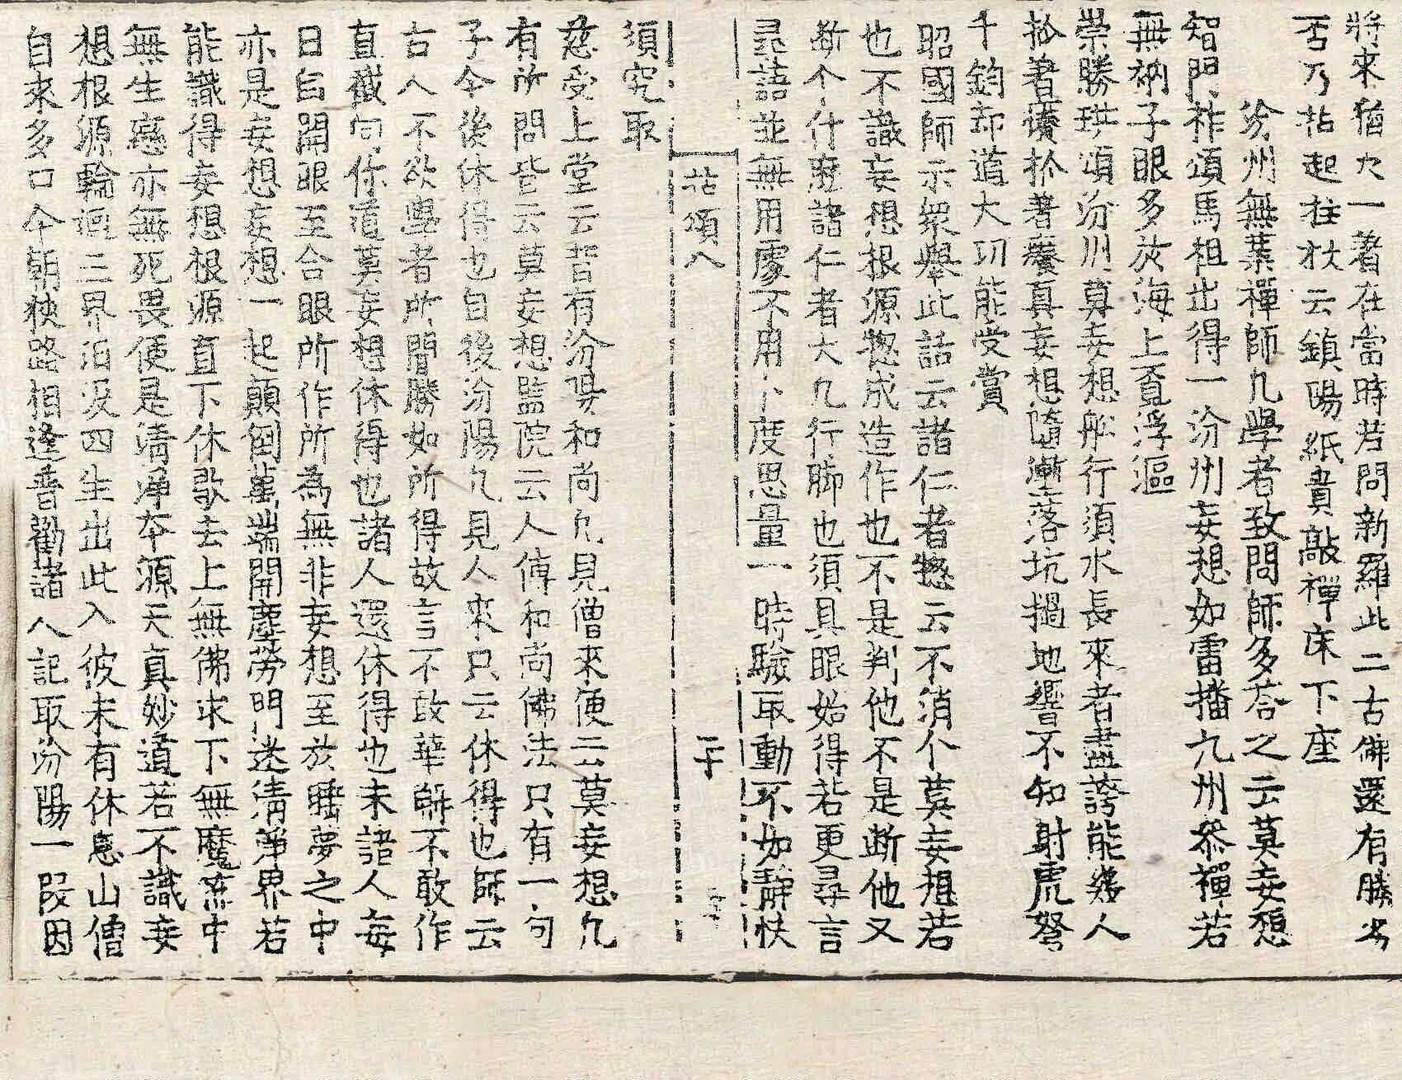 將來猶欠一著在當時若問新羅此二古佛還有勝劣
否乃拈起拄杖云鎮陽紙貴敲禪床下座
汾州無業禪師凡學者致問師多荅之云莫妄想
智門祚頌馬祖出得一汾州妄想如雷播九州參禪若
無衲子眼多於海上覔浮漚
崇勝珙頌汾州莫妄想舩行須水長來者盡誇能幾人
抬著痛抓著癢真妄想隨漸落坑撾地響不知射虎弩
千鈞却道大功能受賞
昭國師示衆舉此話云諸仁者揔云不消个莫妄想若
也不識妄想根源揔成造作也不是判他不是断他又
断个什麽諸仁者大凡行脚也須具眼始得若更尋言
尋語並無用處不用卜度思量一時驗取動不如靜快
拈頌八 二十
須究取
慈受上堂云昔有汾陽和尚凡見僧來便云莫妄想凡
有所問皆云莫妄想監院云人傳和尚佛法只有一句
子今後休得也自後汾陽凡見人來只云休得也師云
古人不欲學者所習勝如所得故言不敢華䛒不敢作
直截句你道莫妄想休得也諸人還休得也未諸人每
日自開眼至合眼所作所為無非妄想至於睡夢之中
亦是妄想妄想一起顛倒萬端開塵勞門迷清淨界若
能識得妄想根源直下休歇去上無佛求下無魔㳅中
無生戀亦無死畏便是清淨本源天真妙道若不識妄
想根源輪迴三界汩没四生出此入彼未有休息山僧
自來多口今朝狹路相逢普勸諸人記取汾陽一段因